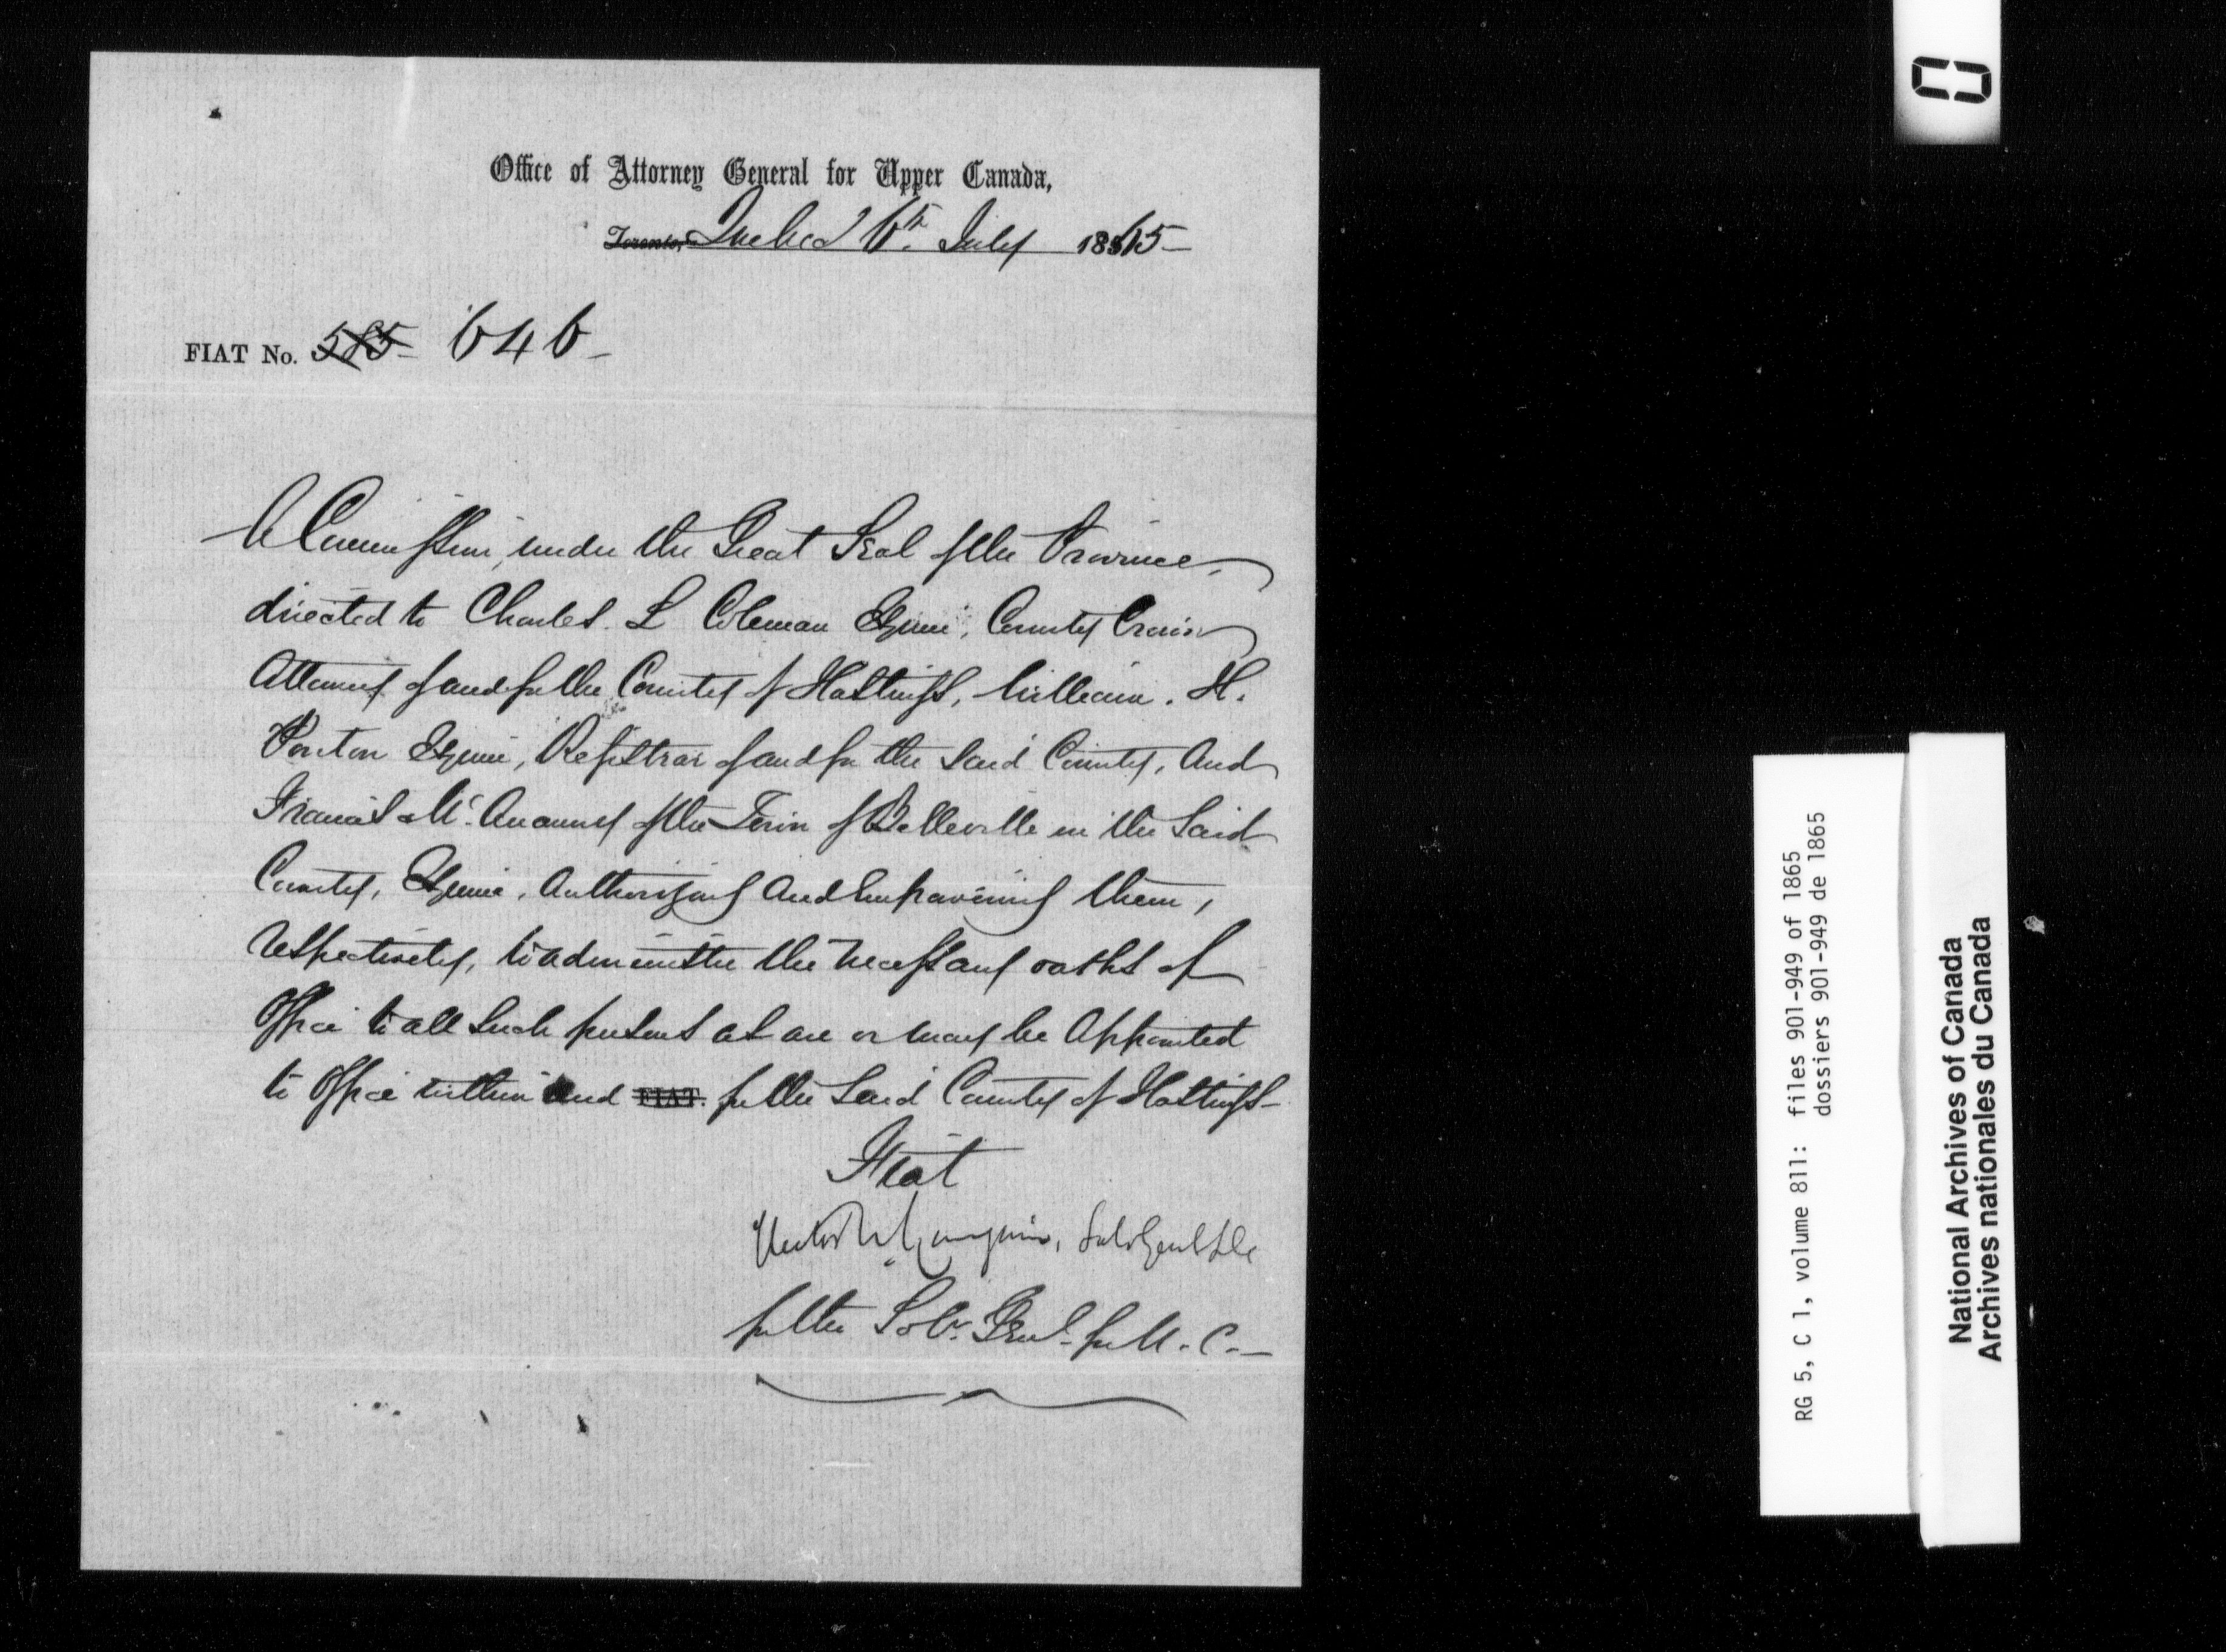 Office of Attorney General for Upper Canada,
Toronto, Quebec 26th July 1865
FIAT No. 585 646
A Commission, under the Great Seal of the Province,
directed to Charles. L Coleman Esquire, County Crown
Attorney of and for the County of Hastings, William. H.
Ponton Esquire, Registrar of and for the said County, And
Francis McAnanny of the Town of Belleville in the Said
County, Esquire, Authorizing And Empowering them,
respectively, to administer the necessary oaths of
Office to all Such persons as are or may be Appointed
to Office within and FIAT. for the Said County of Hastings
Fiat
Hector L. Langevin, Sol. Genl L.C.
for the Solr. Genl. for U. C.
RG 5, C 1, volume 811: files 901-949 of 1865
dossiers 901-949 de 1865
National Archives of Canada
Archives nationales du Canada